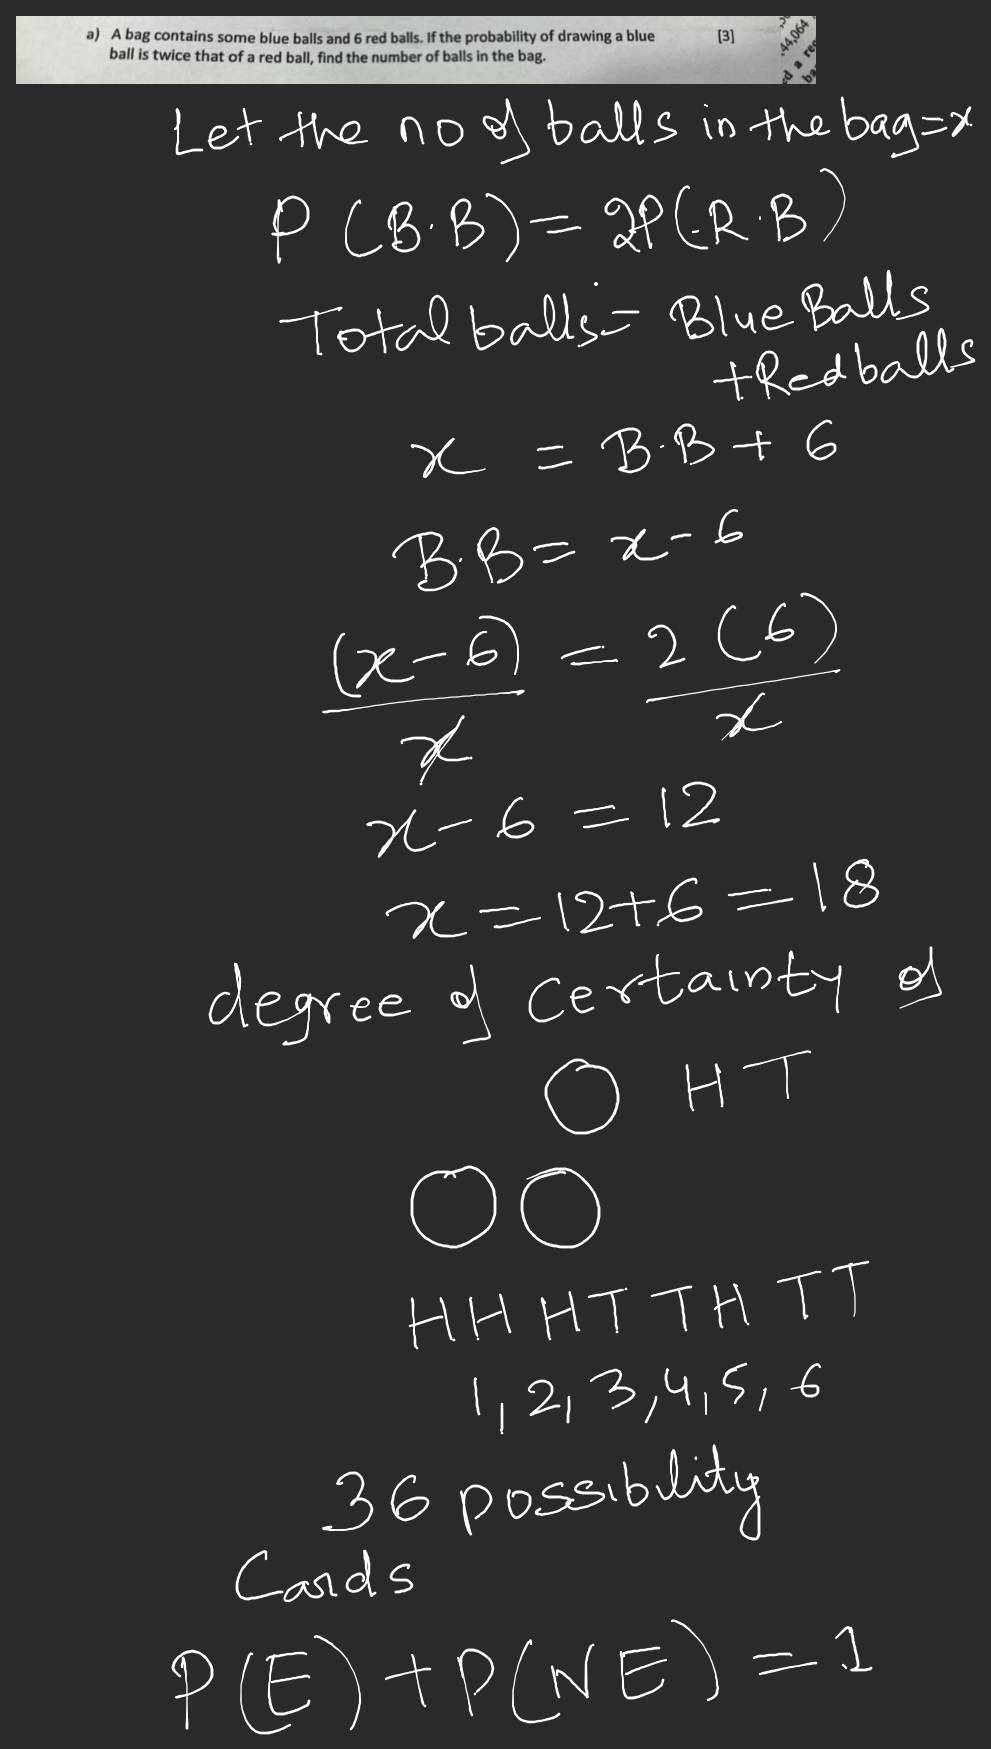 a) A bag contains some blue balls and 6 red balls. If the probability of drawing a blue [3]
ball is twice that of a red ball, find the number of balls in the bag.
44,064
Let the no of balls in the bag=x
P (B.B) = 2P(R.B)
Total balls = Blue Balls
+Red balls
x = B.B + 6
B.B = x - 6
(x-6)/x = 2(6)/x
x - 6 = 12
x = 12+6 = 18
degree of certainty of
O H T
O O
HH HT TH TT
1, 2, 3, 4, 5, 6
36 possiblity
Cards
P(E) + P(NE) = 1